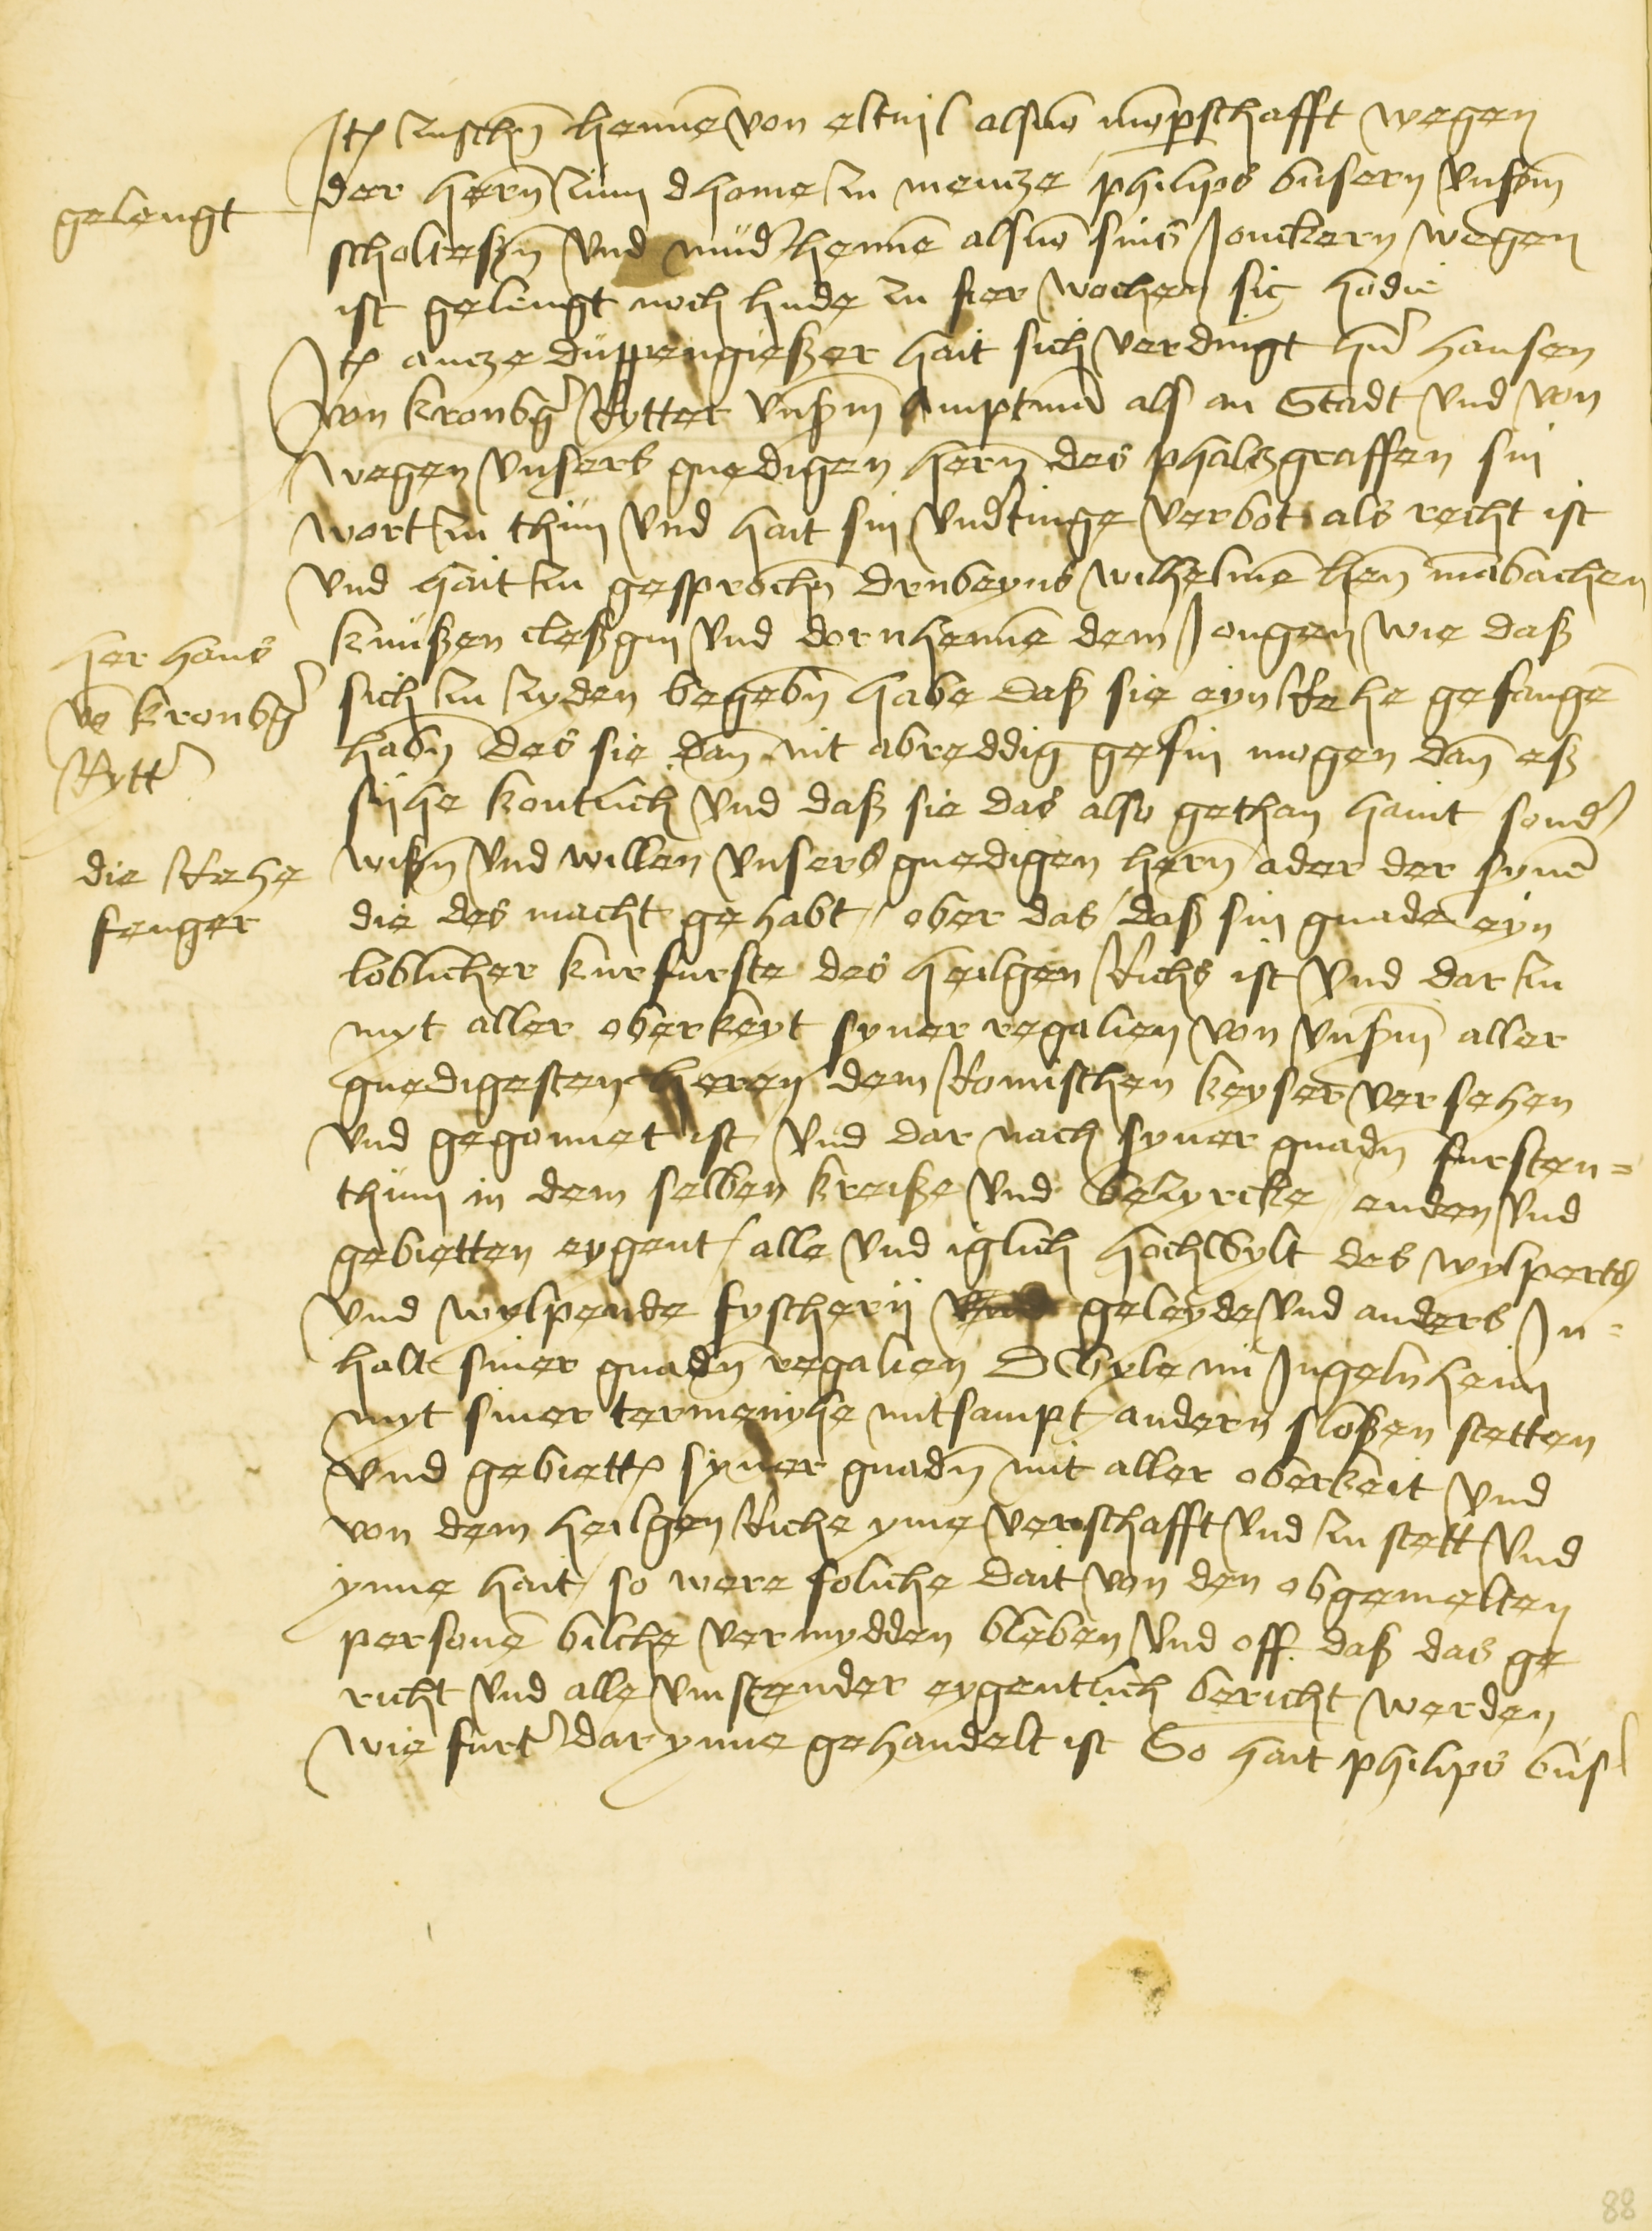 Jt zuschn henne von eltuil als mo(m)pschafft wegen
gelengt
der hern zum dhome zu mencze philips busern vnserm
scholteßn vnd mud henne als sins Jonckern wegen
ist gelengt noch hude zu fier wochen sic hodie
Jt antze duppengießer hait sich verdingt hern hansen
von kronbg Rytter vnßm amptma als an Stadt vnd von
wegen vnsers gnedigen hern des phaltzgraffen sin
wort zu thun vnd hait sin vndtinge verbot als recht ist
vnd hait zu gesprochn Drubeyns wilhelme hen mabachen
her hans
vo kronbg
Rytt
knußen cleßgin vnd dornhenne dem Jongen wie daß
sich zu zyden begebn habe daß sie eyn Rehe gefange
habn Des sie dan nit abreddig gesin mogen dan eß
syhe kontlich vnd daß sie das also gethan haint sond
die Rehe
fenger
wißn vnd willen vnsers gnedigen hern ader der syne
die des macht gehabt / ober das / daß sin gnade eyn
loblicher kurfurste des heilgen Richs ist vnd dar zu
myt aller oberkeyt syner regalien von vnßm aller
gnedigesten heren dem Romischen keyser versehen
vnd gegonnet ist / vnd dar nach syner gnadn fursten=
thum in dem selben kreiße vnd bezyrcke / enden vnd
gebietten eygent / alle vnd iglich hochwylt des wylperts
vnd wylpende fyschery geleyde vnd anders Jn=
halt siner gnadn regalien Dwyle nu Jngelnheim
myt siner termenyhe mitsampt andern sloßen stetten
vnd gebiett syner gnadn mit aller oberkeit vnd
von dem heilgen Riche yme verschafft vnd zu stett vnd
ynne hait / so were soliche dait von den obgemelten
persone bilche vermydden bleben vnd off daß das ge
richt vnd alle vmstender eygentlich bericht werden
wie furt dar ynne gehandelt ist So hait philips bus
88